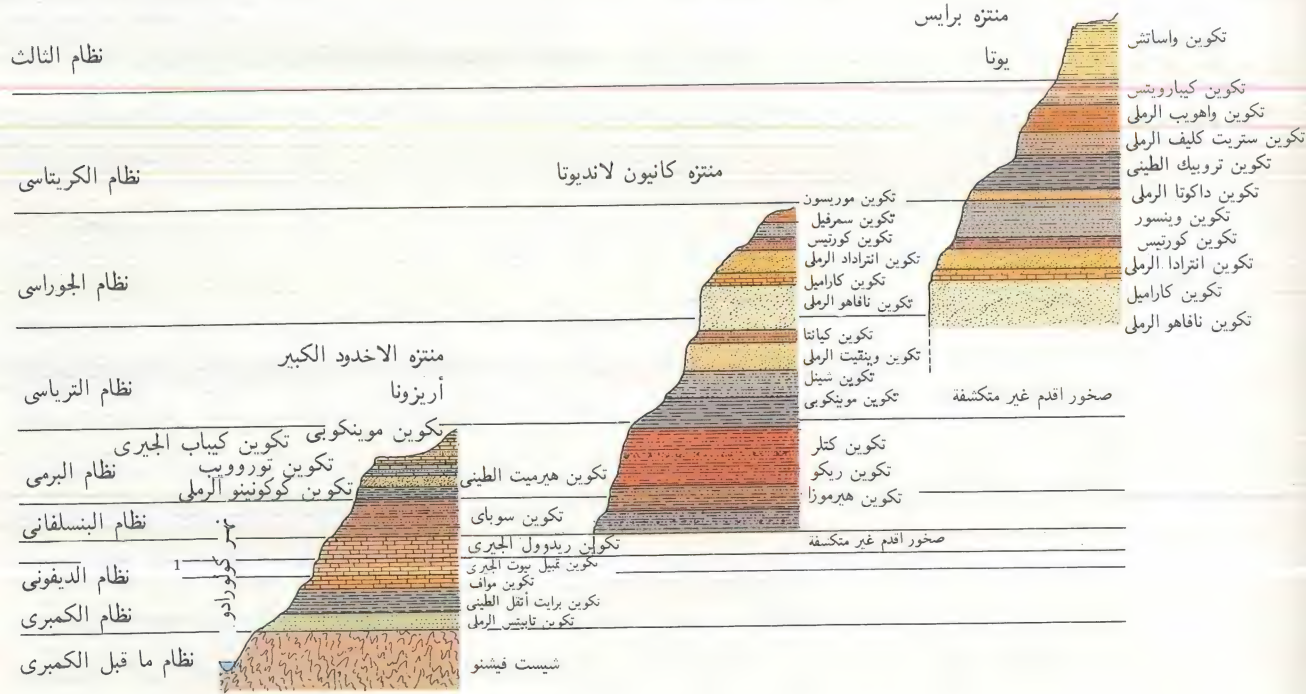 منتزه برايس
يوتا
تكوين واساتش
تكوين كيبارويتس
تكوين واهويب الرملى
تكوين ستريت كليف الرملى
تكوين تروبيك الطينى
تكوين داكوتا الرملى
تكوين وينسور
تكوين كورتيس
تكوين انترادا الرملى
تكوين كاراميل
تكوين نافاهو الرملى
صخور اقدم غير متكشفة
منتزه كانيون لانديوتا
تكوين موريسون
تكوين سمرفيل
تكوين كورتيس
تكوين انتراداد الرملى
تكوين كاراميل
تكوين نافاهو الرملى
تكوين كيانتا
تكوين وينقيت الرملى
تكوين شينل
تكوين موينكوبى
تكوين كتلر
تكوين ريكو
تكوين هيرموزا
صخور اقدم غير متكسفة
منتزه الاخدود الكبير
أريزونا
تكوين موينكوبى
تكوين كيباب الجيرى
تكوين توروويب
تكوين كوكونينو الرملى
تكوين هيرميت الطينى
تكوين سوباى
تكوين ريدوول الجيرى
تكوين تمبيل بيوت الجيرى
تكوين مواف
تكوين برايت أنقل الطينى
تكوين تابيتس الرملى
شيست فيشنو
نهر كولورادو
1
نظام الثالث
نظام الكريتاسى
نظام الجوراسى
نظام الترياسى
نظام البرمى
نظام البنسلفانى
نظام الديفونى
نظام الكمبرى
نظام ما قبل الكمبرى